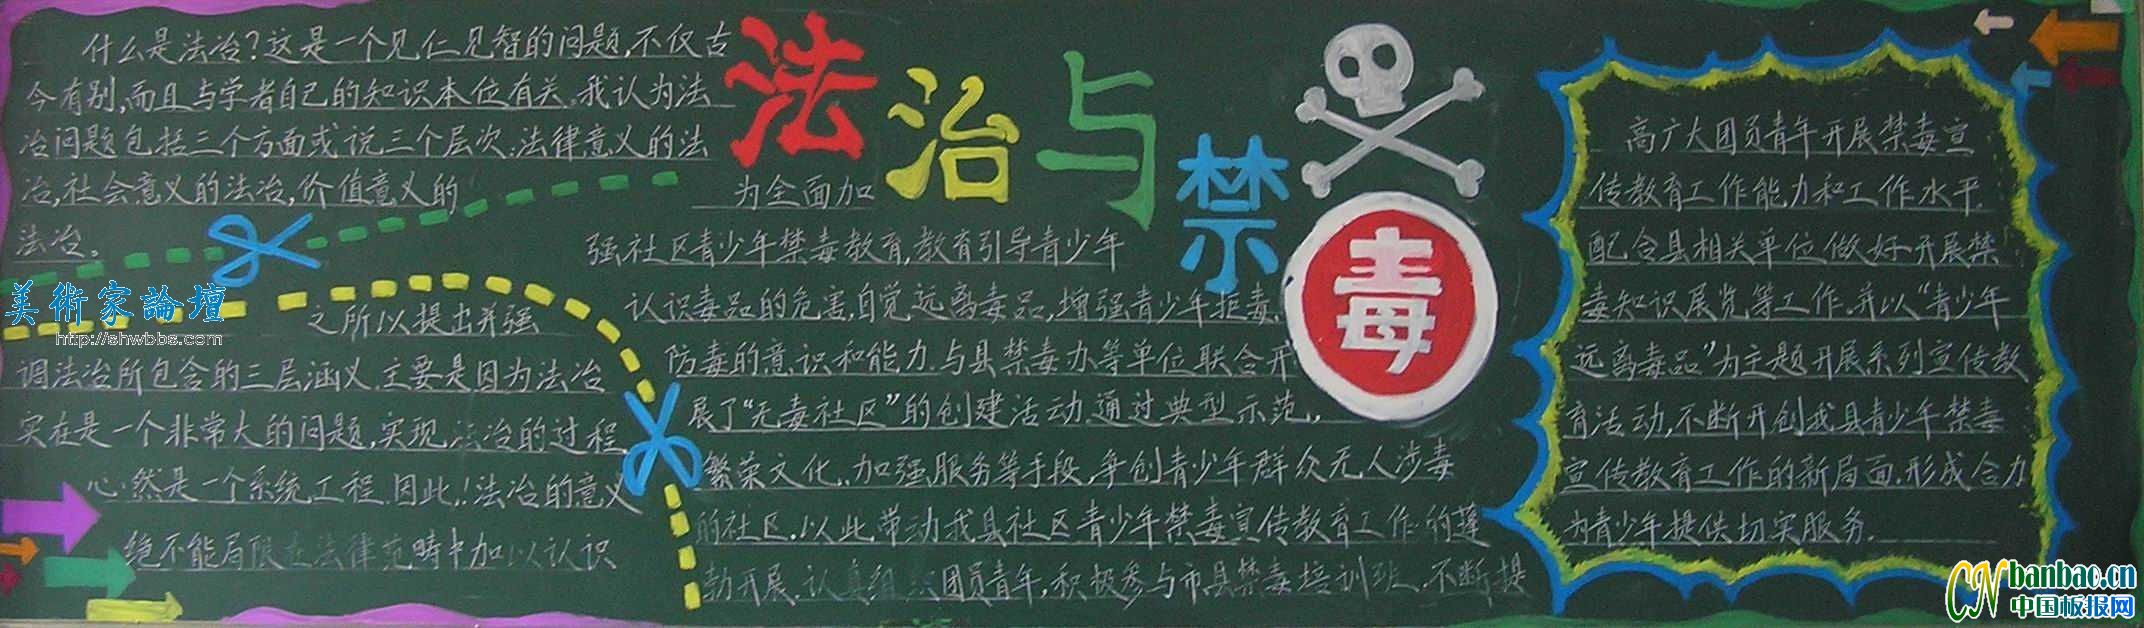 法治与禁毒
什么是法治?这是一个见仁见智的问题,不仅古
今有别,而且与学者自己的知识本位有关。我认为法
治问题包括三个方面或说三个层次:法律意义的法
治,社会意义的法治,价值意义的
法治。
之所以提出并强
调法治所包含的三层涵义.主要是因为法治
实在是一个非常大的问题,实现法治的过程
心然是一个系统工程.因此,!法治的意义
绝不能局限在法律范畴中加以认识
为全面加
强社区青少年禁毒教育,教育引导青少年
认识毒品的危害,自觉远离毒品,增强青少年拒毒、
防毒的意识和能力.与县禁毒办等单位联合开
展了“无毒社区”的创建活动.通过典型示范、
繁荣文化、加强服务等手段,争创青少年群众无人涉毒
的社区.以此带动我县社区青少年禁毒宣传教育工作的蓬
勃开展.认真组织团员青年,积极参与市县禁毒培训班.不断提
高广大团员青年开展禁毒宣
传教育工作能力和工作水平.
配合县相关单位做好开展禁
毒知识展览等工作.并以“青少年
远离毒品”为主题开展系列宣传教
育活动,不断开创我县青少年禁毒
宣传教育工作的新局面.形成合力
为青少年提供切实服务.
美術家論壇
http://shwbbs.com
CN banbao.cn
中国板报网